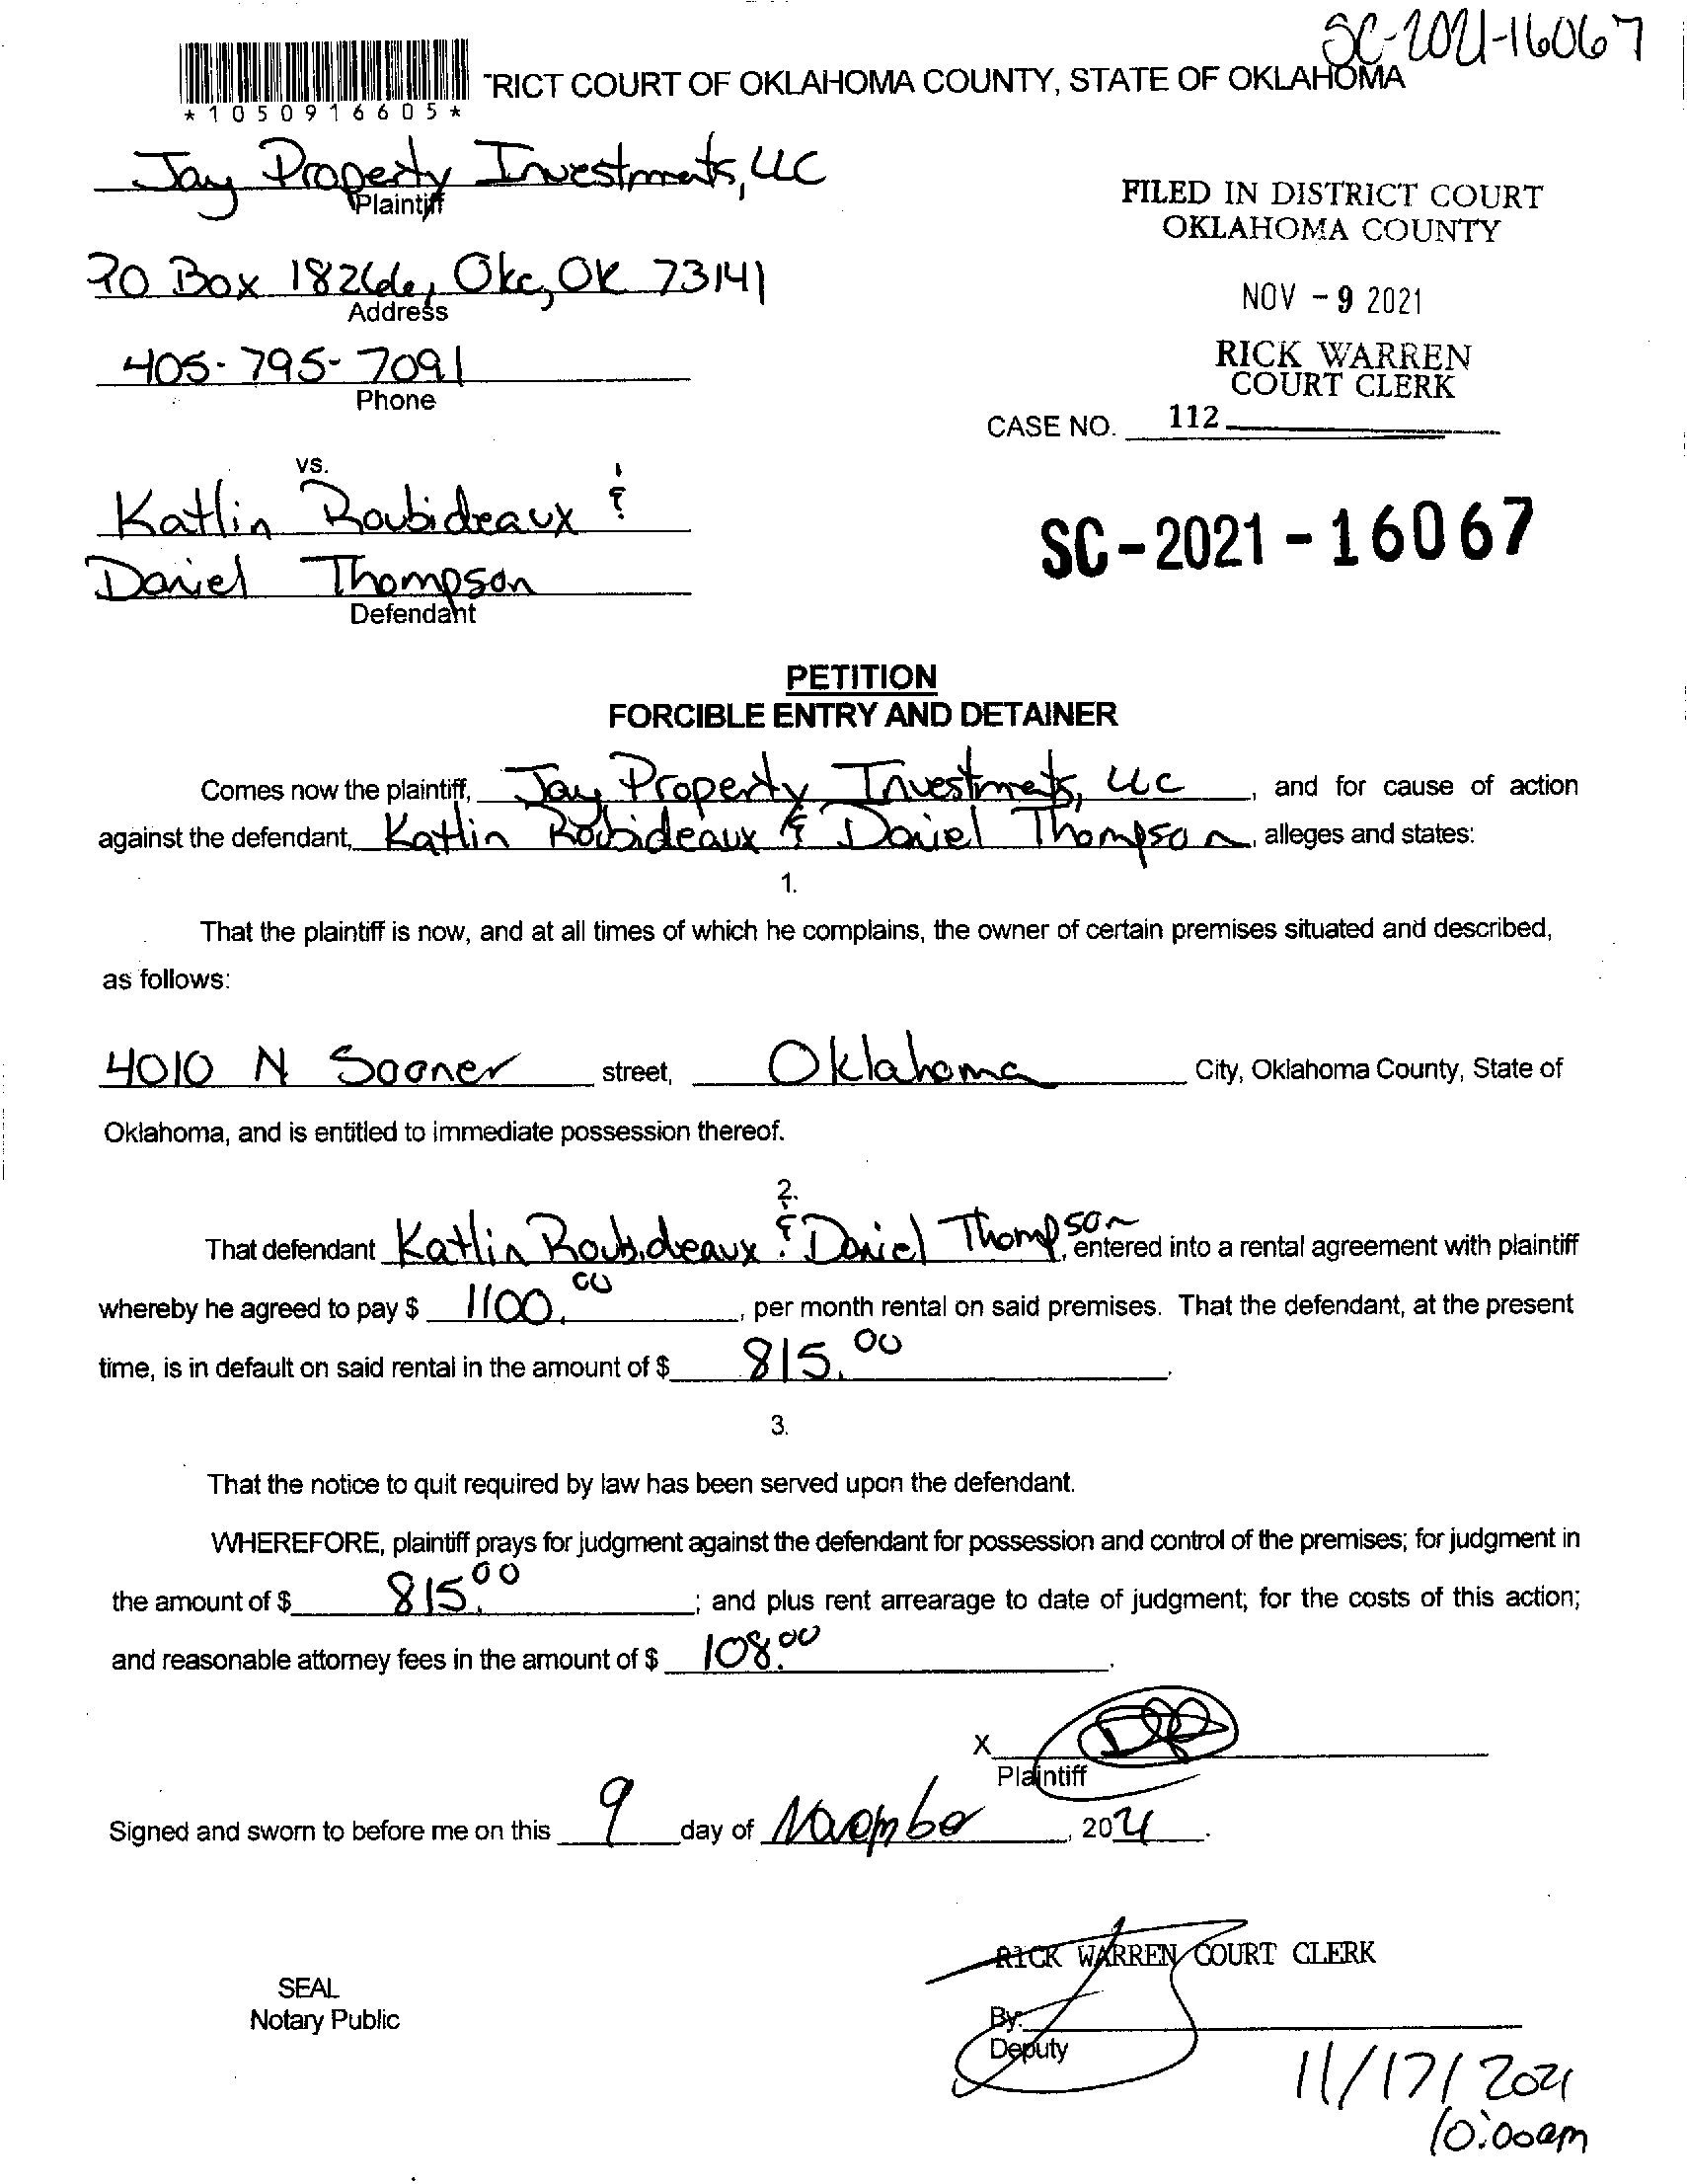 SC-2021-16067
*1050916605*
RICT COURT OF OKLAHOMA COUNTY, STATE OF OKLAHOMA
Jay Property Investments, LLC
Plaintiff
FILED IN DISTRICT COURT
OKLAHOMA COUNTY
PO Box , Okc, OK 73141
Address
NOV - 9 2021
405-795-7091
Phone
RICK WARREN
COURT CLERK
CASE NO. 112
vs.
Katlin Roubideaux &
Daniel Thompson
Defendant
SC-2021-16067
PETITION
FORCIBLE ENTRY AND DETAINER
Comes now the plaintiff, Jay Property Investments, LLC, and for cause of action
against the defendant, Katlin Robideaux & Daniel Thompson, alleges and states:
1.
That the plaintiff is now, and at all times of which he complains, the owner of certain premises situated and described,
as follows:
4010 N Sooner street, Oklahoma City, Oklahoma County, State of
Oklahoma, and is entitled to immediate possession thereof.
2.
That defendant Katlin Roubideaux & Daniel Thompson, entered into a rental agreement with plaintiff
whereby he agreed to pay $ 1100.00, per month rental on said premises. That the defendant, at the present
time, is in default on said rental in the amount of $ 815.00.
3.
That the notice to quit required by law has been served upon the defendant.
WHEREFORE, plaintiff prays for judgment against the defendant for possession and control of the premises; for judgment in
the amount of $ 815.00; and plus rent arrearage to date of judgment; for the costs of this action;
and reasonable attorney fees in the amount of $ 108.00.
X
Plaintiff
Signed and sworn to before me on this 9 day of November, 2021.
RICK WARREN COURT CLERK
SEAL
Notary Public
By:
Deputy
11/17/2021
10:00am